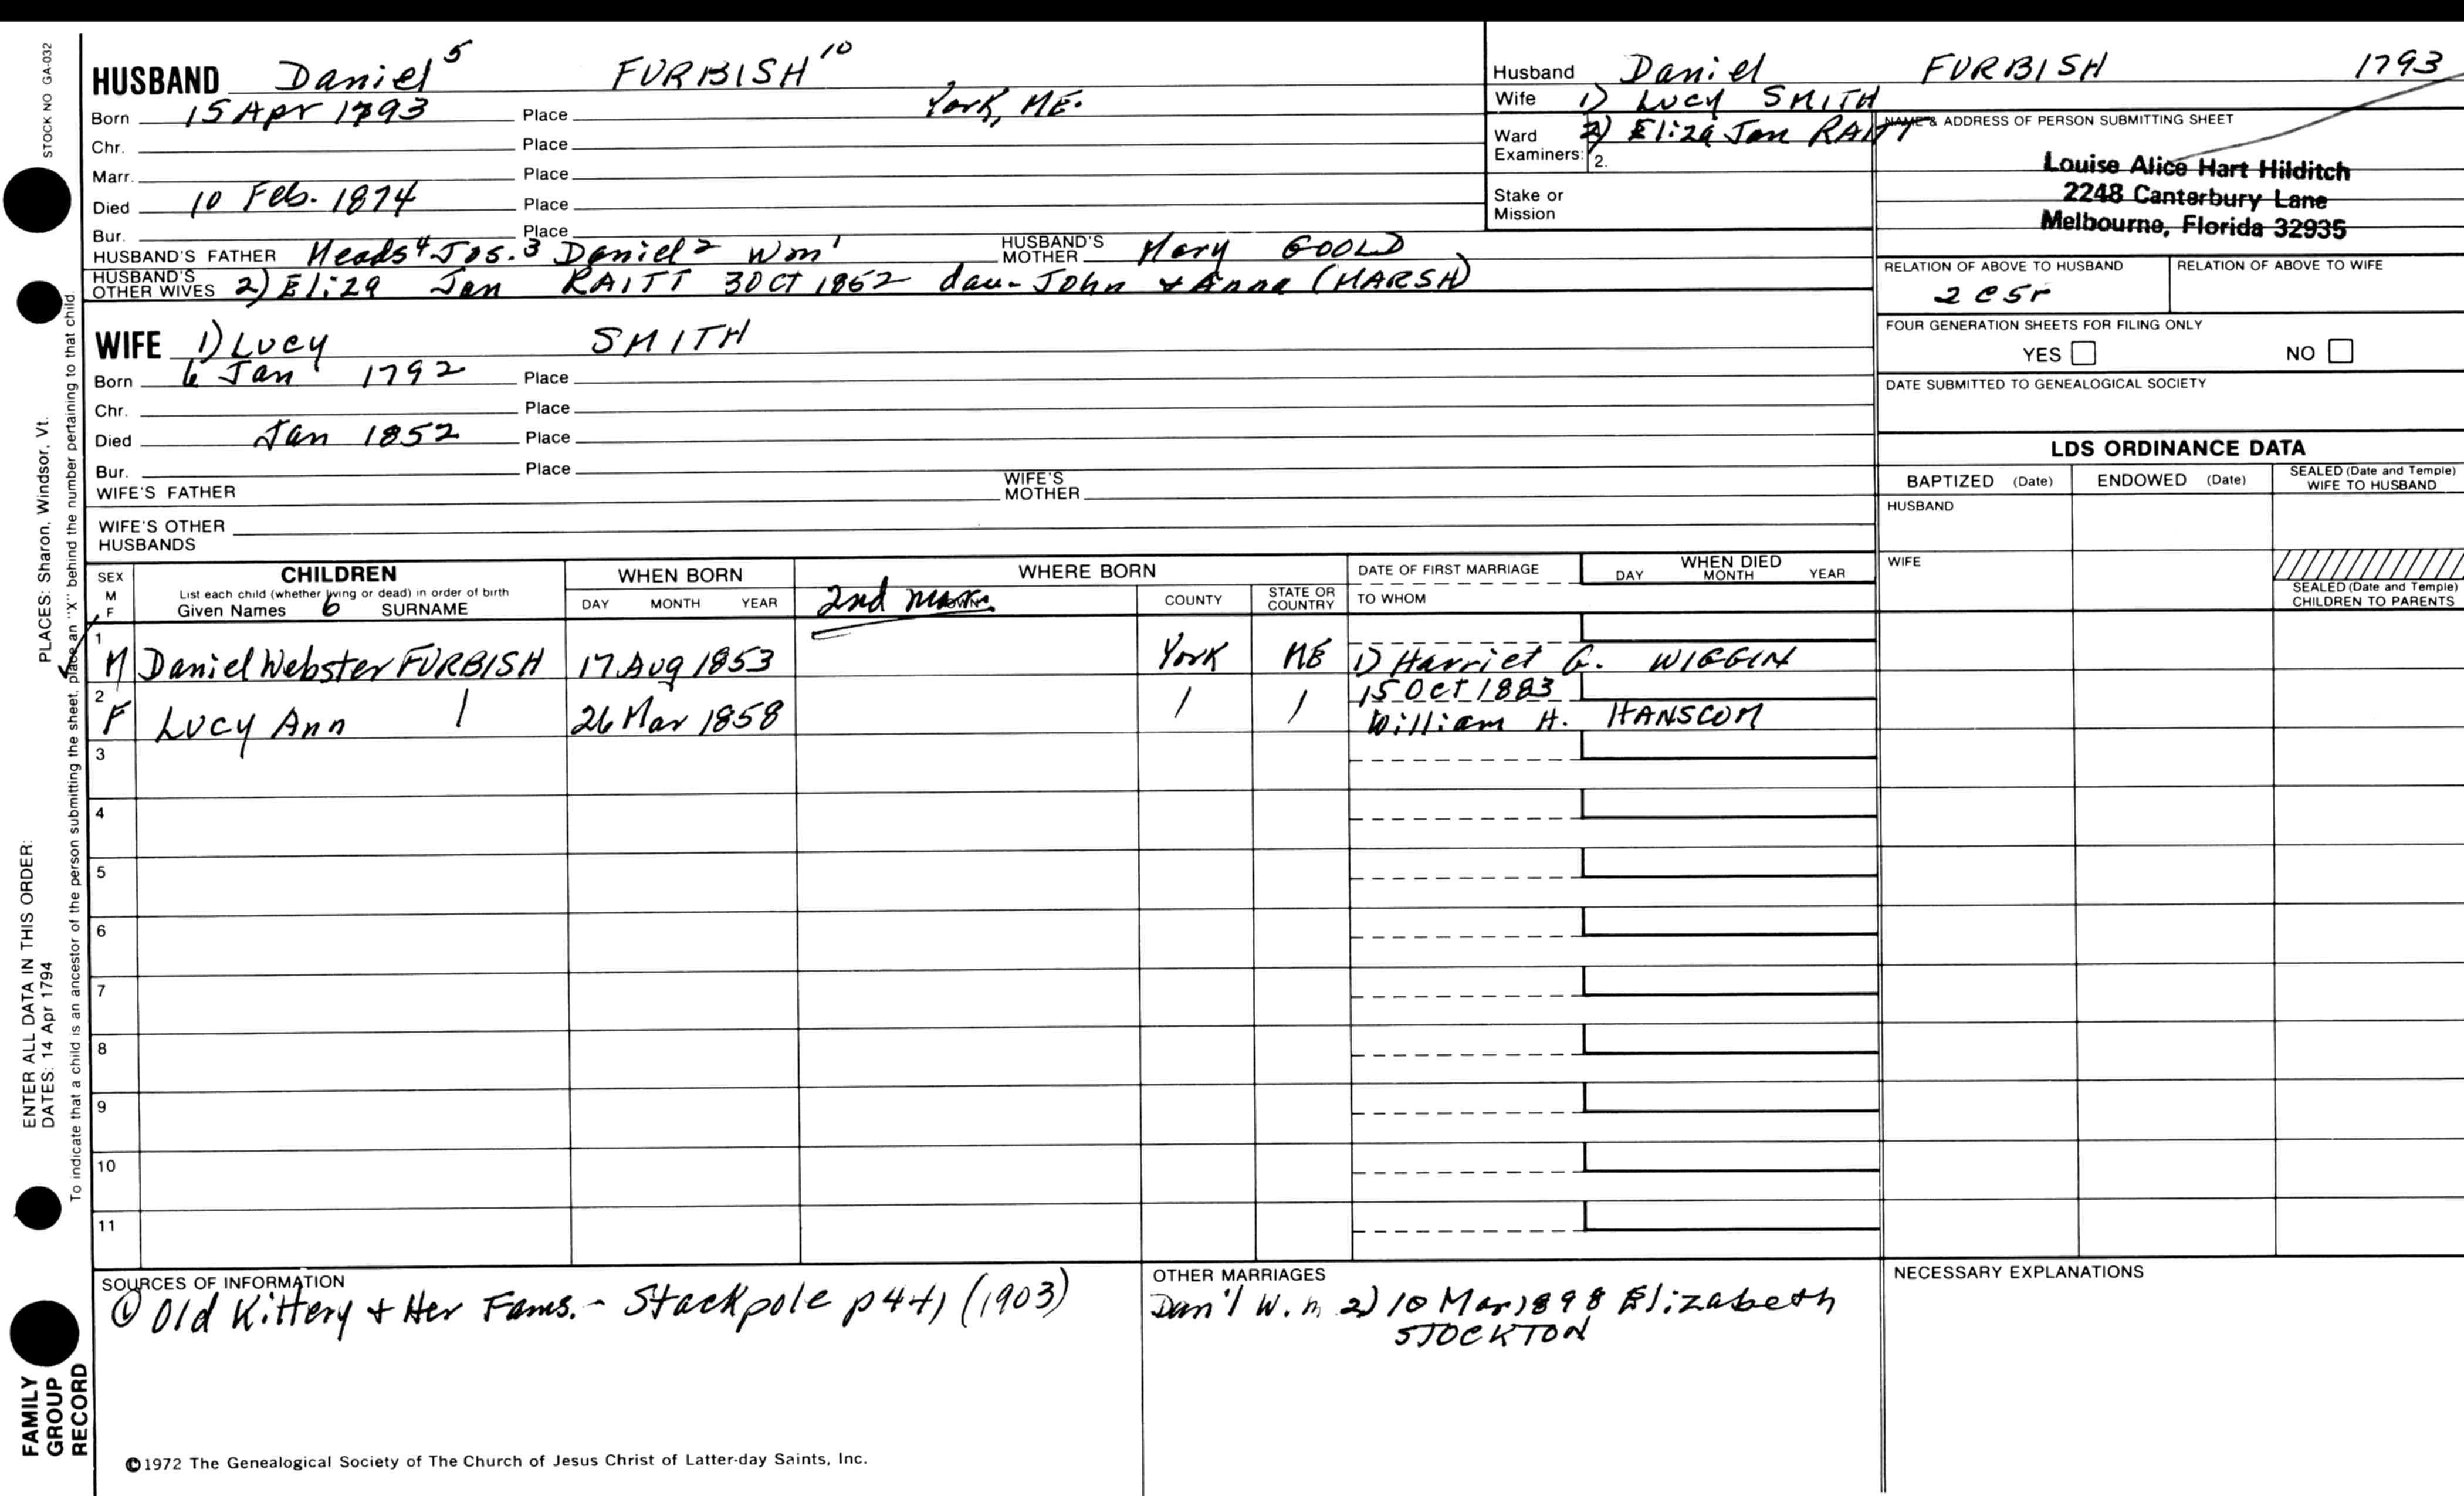 STOCK NO GA-032
HUSBAND Daniel⁵ FURBISH¹⁰
Born 15 Apr 1793 Place York, ME.
Chr. Place
Marr. Place
Died 10 Feb. 1874 Place
Bur. Place
HUSBAND'S FATHER Meads⁴ Jos.³ Daniel² Wm¹ HUSBAND'S MOTHER Mary GOOLD
HUSBAND'S OTHER WIVES 2) Eliza Jan RAITT 30 CT 1852 dau- John & Anna (MARSH)
WIFE 1) Lucy SMITH
Born 6 Jan 1792 Place
Chr. Place
Died Jan 1852 Place
Bur. Place
WIFE'S FATHER WIFE'S MOTHER
WIFE'S OTHER HUSBANDS
Husband Daniel FURBISH 1793
Wife 1) Lucy SMITH
Ward 2) Eliza Jan RAITT
Examiners: 2.
Stake or Mission
NAME & ADDRESS OF PERSON SUBMITTING SHEET
Louise Alice Hart Hilditch
2248 Canterbury Lane
Melbourne, Florida 32935
RELATION OF ABOVE TO HUSBAND RELATION OF ABOVE TO WIFE
2 c 5r
FOUR GENERATION SHEETS FOR FILING ONLY
YES NO
DATE SUBMITTED TO GENEALOGICAL SOCIETY
LDS ORDINANCE DATA
BAPTIZED (Date) ENDOWED (Date) SEALED (Date and Temple) WIFE TO HUSBAND
HUSBAND
WIFE
SEALED (Date and Temple) CHILDREN TO PARENTS
SEX M F CHILDREN WHEN BORN WHERE BORN DATE OF FIRST MARRIAGE WHEN DIED
List each child (whether living or dead) in order of birth
Given Names 6 SURNAME DAY MONTH YEAR 2nd marr. TOWN COUNTY STATE OR COUNTRY TO WHOM DAY MONTH YEAR
1 M Daniel Webster FURBISH 17 Aug 1853 York ME 1) Harriet G. WIGGIN
2 F Lucy Ann / 26 Mar 1858 / / 15 Oct 1883 William H. HANSCOM
3
4
5
6
7
8
9
10
11
SOURCES OF INFORMATION
① Old Kittery & Her Fams. - Stackpole p 441 (1903)
OTHER MARRIAGES
Dan'l W. m 2) 10 Mar 1898 Elizabeth
STOCKTON
NECESSARY EXPLANATIONS
©1972 The Genealogical Society of The Church of Jesus Christ of Latter-day Saints, Inc.
FAMILY GROUP RECORD
ENTER ALL DATA IN THIS ORDER:
DATES: 14 Apr 1794
PLACES: Sharon, Windsor, Vt.
To indicate that a child is an ancestor of the person submitting the sheet, place an "X" behind the number pertaining to that child.